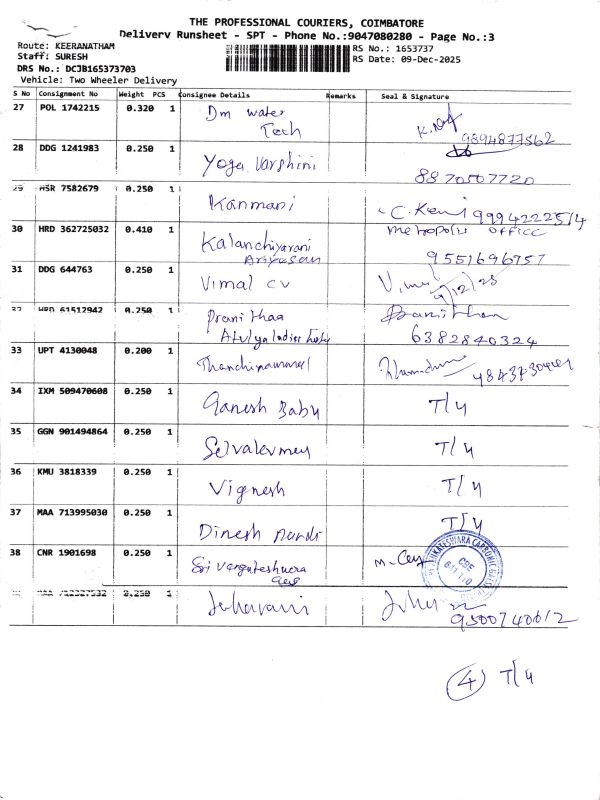 THE PROFESSIONAL COURIERS, COIMBATORE
Delivery Runsheet - SPT - Phone No.:9047080280 - Page No.:3
Route: KEERANATHAM
Staff: SURESH
DRS No.: DCJB165373703
Vehicle: Two Wheeler Delivery
RS No.: 1653737
RS Date: 09-Dec-2025
S No Consignment No Weight PCS Consignee Details Remarks Seal & Signature
27 POL 1742215 0.320 1 Dm water
Tech
9894877562
28 DDG 1241983 0.250 1 Yoga Varshini
8870507720
29 HSR 7582679 0.250 1 Kanmani
30 HRD 362725032 0.410 1 Kalanchiyarani metropolis OFFICE
9551696757
31 DDG 644763 0.250 1 Vimal cv
9/12/25
32 HRD 61512942 0.250 1 Pranithaa
6382840324
33 UPT 4130048 0.200 1
34 IXM 509470608 0.250 1 Ganesh Babu T/4
35 GGN 901494864 0.250 1 T/4
36 KMU 3818339 0.250 1 Vignesh T/4
37 MAA 713995030 0.250 1 Dinesh T/4
38 CNR 1901698 0.250 1 Sri
0.250 1
9500740612
4 T/4